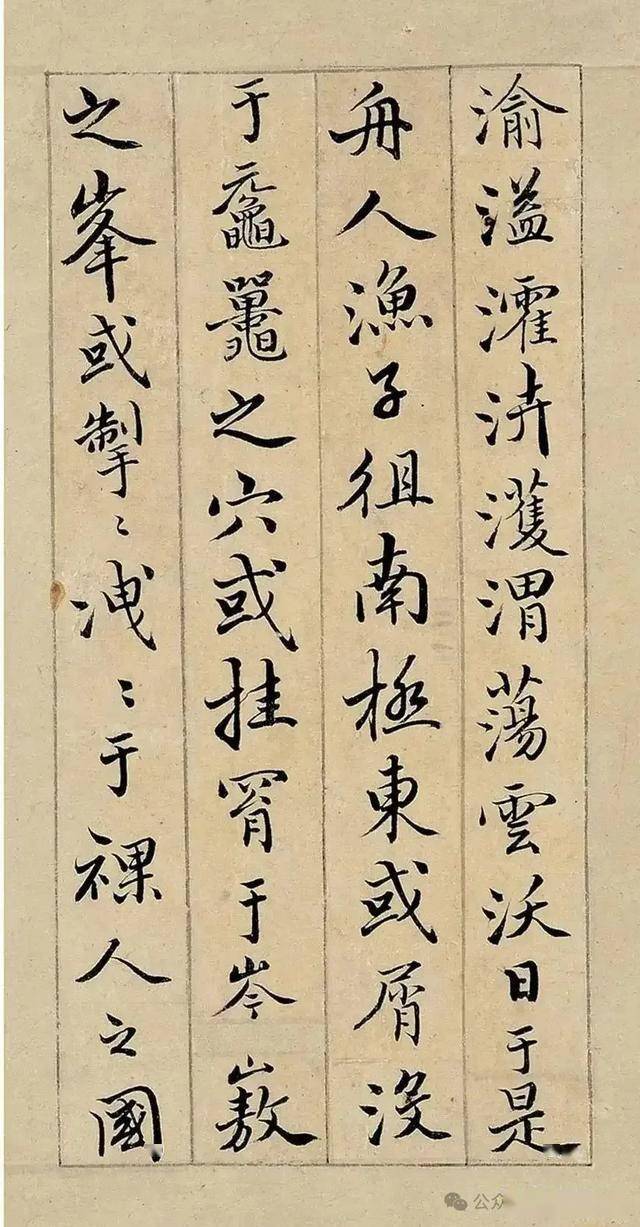 渝溢瀖泋濩渭蕩雲沃日于是
舟人漁子徂南極東或屑没
于黿鼉之穴或挂罥于岑㟼
之峯或掣〻洩〻于裸人之國
公众